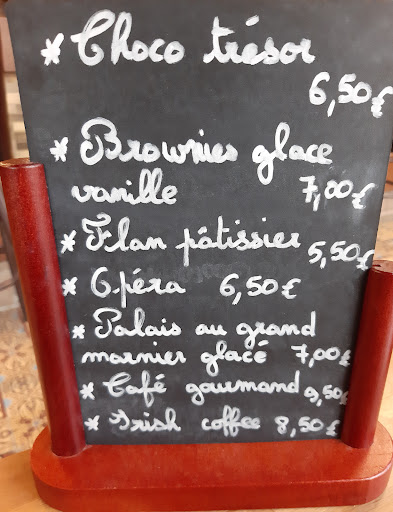 * Choco trésor
6,50€
* Brownies glace
vanille 7,00€
* Flan pâtissier 5,50€
* Opéra 6,50€
* Palais au grand
marnier glacé 7,00€
* Café gourmand 9,50€
* Irish coffee 8,50€